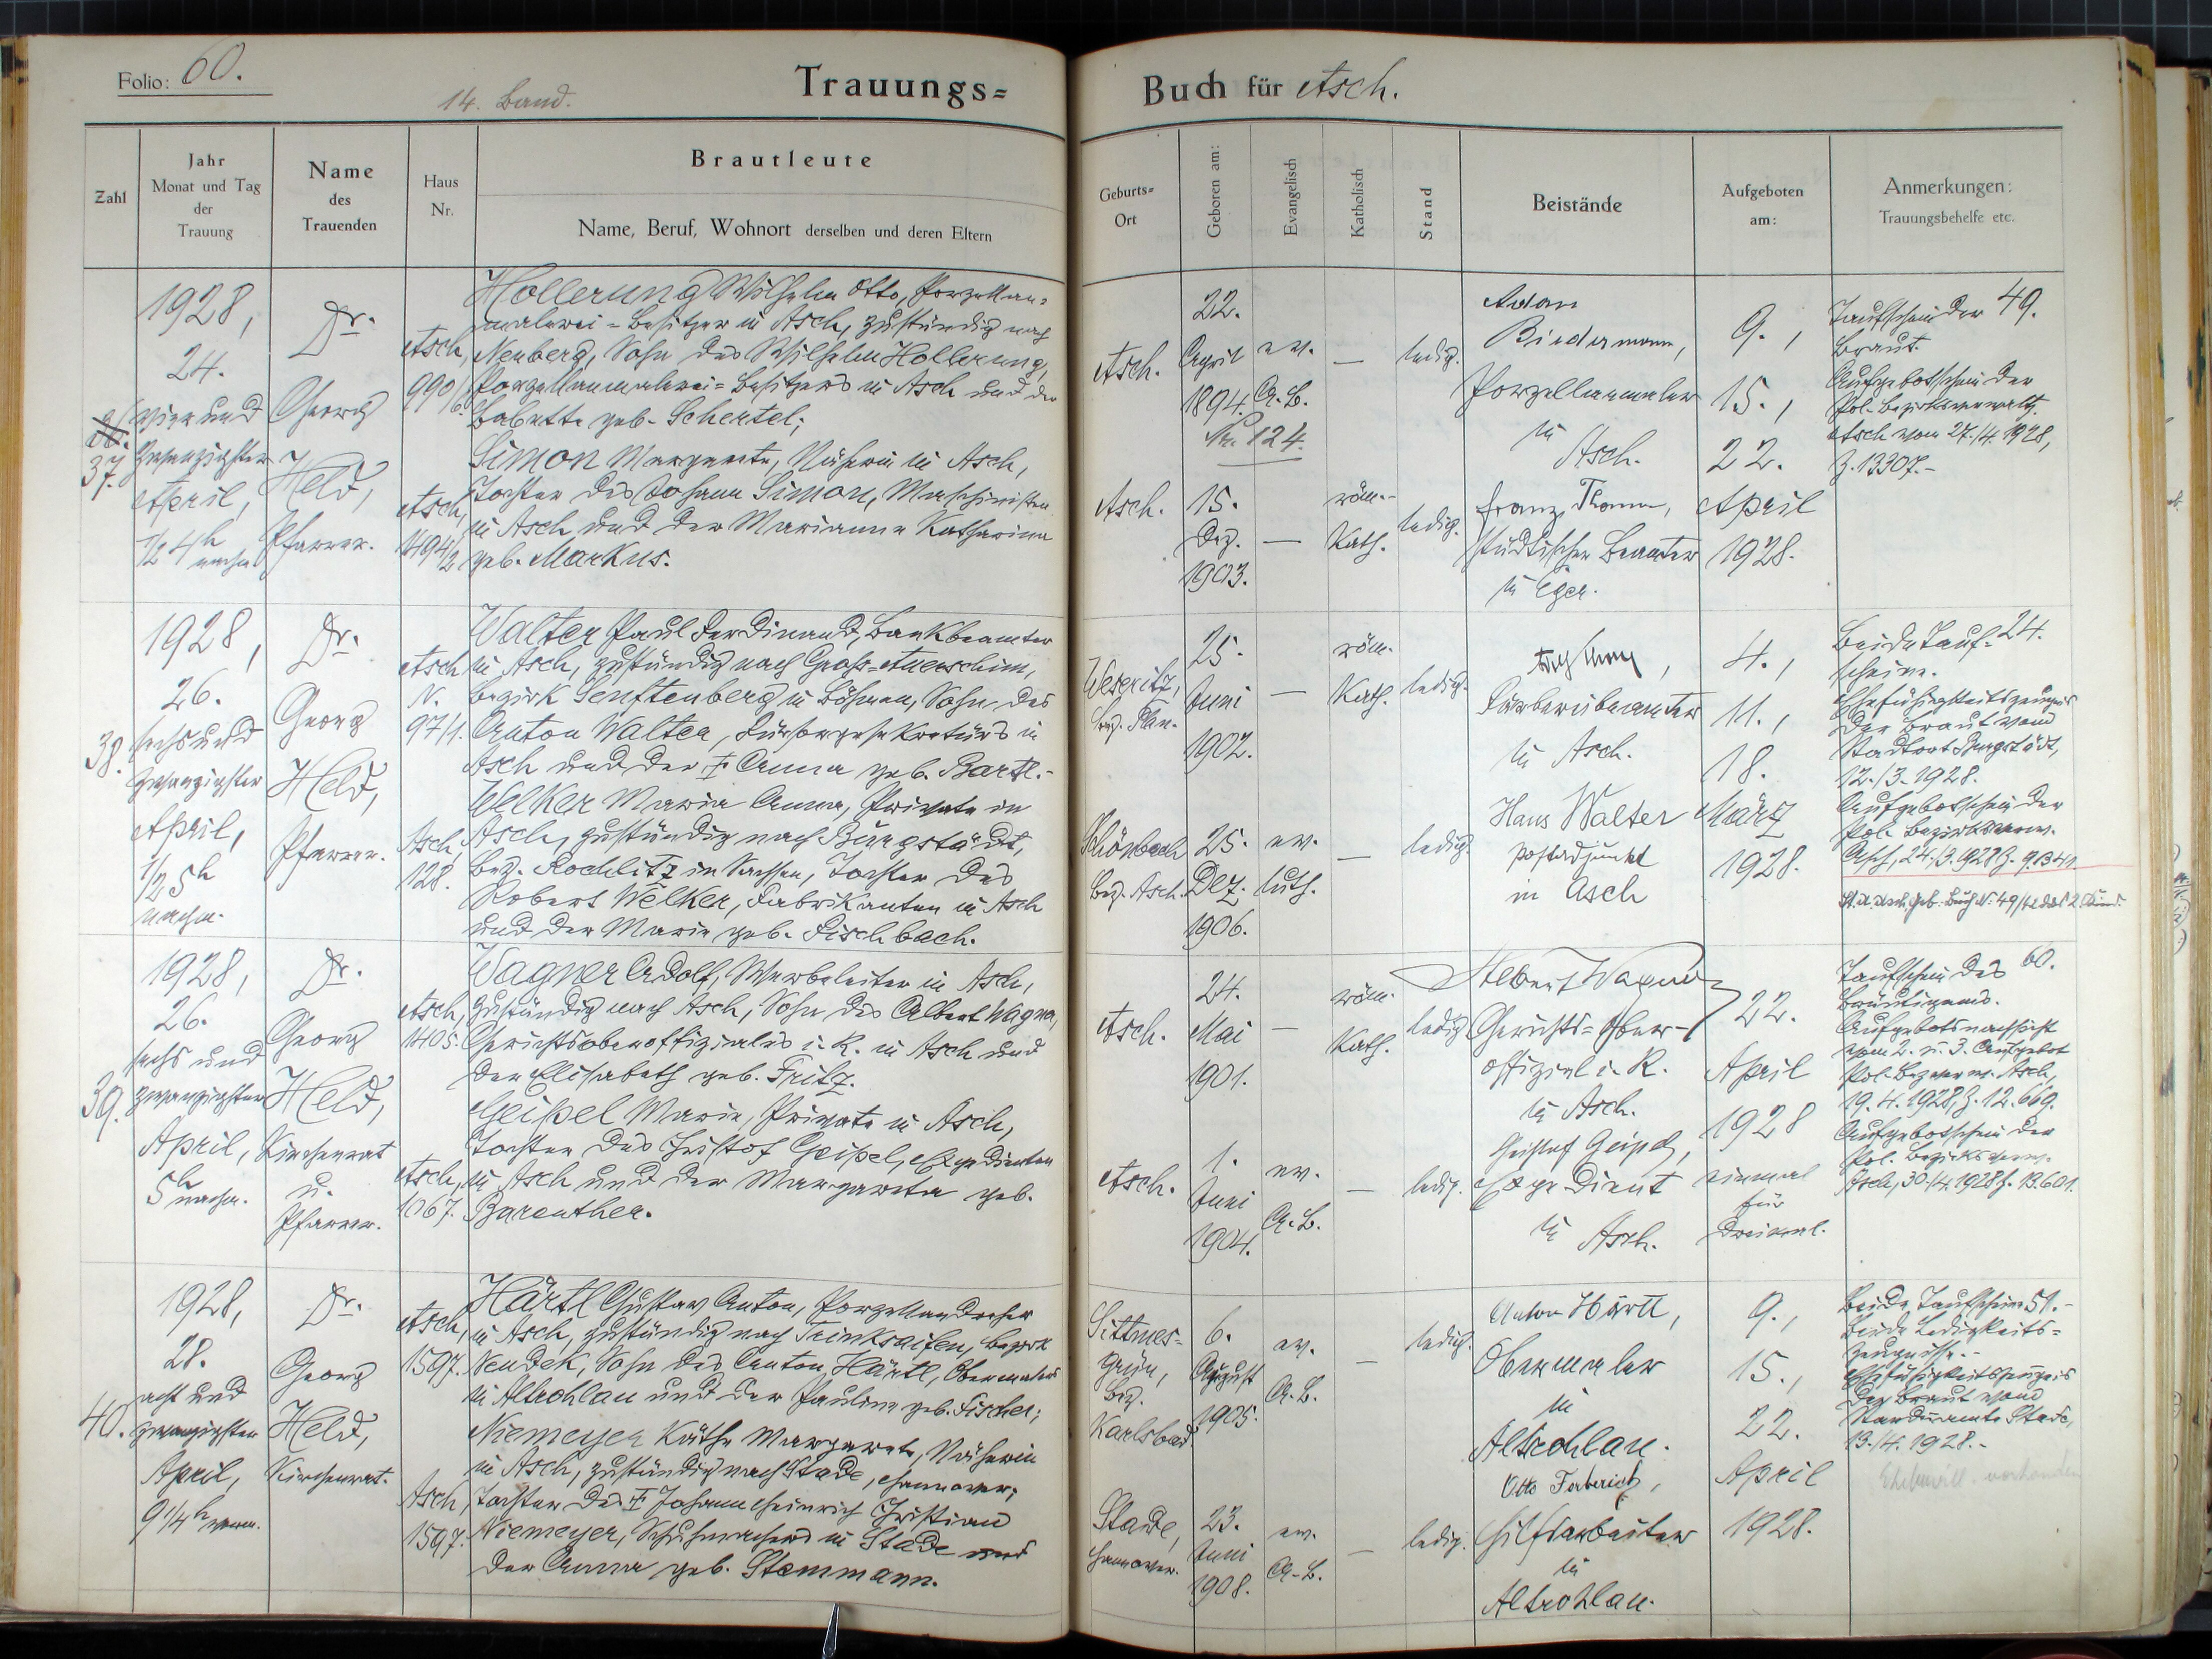 Folio: 60.
14. Band.
Trauungs=
Zahl
Jahr
Monat und Tag
der
Trauung
Name
des
Trauenden
Haus
Nr.
Brautleute
Name, Beruf, Wohnort derselben und deren Eltern
37.
1928,
24.
vier und
zwanzigsten
April,
1/2 4h
nachm.
Dr.
Georg
Held,
Pfarrer.
Asch,
990/6.
Hollerung Wilhelm Otto, Porzellan-
malerei=Besitzer in Asch, zuständig nach
Neuberg, Sohn des Wilhelm Hollerung,
Porzellanmalerei=Besitzers in Asch und der
Babette geb. Schertel;
Asch,
1494/2
Simon Margarete, Näherin in Asch,
Tochter des Johann Simon, Maschinisten
in Asch und der Marianna Katharina
geb. Markus.
38.
1928,
26.
sechs und
zwanzigster
April,
1/2 5h
nachm.
Dr.
Georg
Held,
Pfarrer.
Asch
N.
97/1.
Walter Paul Ferdinand, Bankbeamter
in Asch, zuständig nach Gross=
Bezirk Senftenberg in Böhmen, Sohn des
Anton Walter, Fürsorgesekretärs in
Asch und der † Anna geb. Bartl.-
Asch,
128.
Welker Maria Anna, Private in
Asch, zuständig nach Burgstädt,
Bez. Rochlitz in Sachsen, Tochter des
Robert Welker, Fabrikanten in Asch
und der Marie geb. Fischbach.
39.
1928,
26.
sechs und
zwanzigsten
April,
5h nachm.
Dr.
Georg
Held,
Kirchenrat
u.
Pfarrer.
Asch,
1405.
Wagner Adolf, Webeleiter in Asch,
zuständig nach Asch, Sohn des Albert Wagner,
Gerichtsoberoffizials i. R. in Asch und
der Elisabeth geb. Fritz.
Asch,
1067.
Geipel Marie, Private in Asch,
Tochter des Christof Geipel, Expedienten
in Asch und der Margareta geb.
Bareuther.
40.
1928,
28.
acht und
zwanzigsten
April,
9 1/4h vorm.
Dr.
Georg
Held,
Kirchenrat.
Asch,
1597.
Härtl Gustav Anton, Porzellandreher
in Asch, zuständig nach Trinksaifen, Bezirk
Neudek, Sohn des Anton Härtl, Obermalers
in Altrohlau und der Pauline geb. Fischer;
Asch,
1597.
Niemeyer Käthe Margarete, Näherin
in Asch, zuständig nach Stade, Hannover;
Tochter des † Johann Heinrich Christian
Niemeyer, Schuhmachers in Stade und
der Anna geb. Stemmann.
Buch für Asch.
Geburts=
Ort
Geboren am:
Evangelisch
Katholisch
Stand
Beistände
Aufgeboten
am:
Anmerkungen:
Trauungsbehelfe etc.
Asch.
22.
April
1894.
No 124.
ev.
A. B.
—
ledig.
Adam
Biedermann,
Porzellanmaler
in
Asch.
Asch.
15.
Dez.
1903.
—
röm.-
Kath.
ledig.
Franz Thoma,
städtischer Beamter
in Eger.
9.,
15.,
22.
April
1928.
Taufschein der 49.
Braut.
Aufgebotsschein der
Pol. Bezirksverwaltg.
Asch vom 27./4. 1928,
Z. 13307.-
Weseritz,
Bez. Plan.
25.
Juni
1902.
—
röm.
Kath.
ledig.
Färbereibeamter
in Asch.
Schönbach
Bez. Asch.
25.
Dez.
1906.
ev.
luth.
—
ledig.
Hans Walter
Postadjunkt
in Asch
4.,
11.,
18.
März
1928.
Beide Tauf- 24.
scheine.
Ehefähigkeitszeugnis
der Braut vom
Stadtrat Burgstädt,
12./3. 1928.
Aufgebotsschein der
Pol. Bezirksverw.
Asch, 24./3. 1928 Z. 9341.
Asch.
24.
Mai
1901.
—
röm.
Kath.
ledig
Albert Wagner
Gerichts=Ober-
offizial i. R.
in Asch.
Asch.
1.
Juni
1904.
ev.
A. B.
—
ledig.
Christof Geipel,
Expedient
in Asch.
22.
April
1928
einmal
für
dreimal.
Taufschein des 60.
Bräutigams.
Aufgebotsnachsicht
vom 2. u. 3. Aufgebot
Pol. Bez.verw. Asch,
19. 4. 1928, Z. 12.669.
Aufgebotsschein der
Pol. Bezirksverw.
Asch, 30./4. 1928 Z. 13.601.
Sittmes-
grün,
Bez.
Karlsbad
6.
August
1905.
ev.
A. B.
—
ledig.
Anton Härtl,
Obermaler
in
Altrohlau.
Stade,
Hannover.
23.
Juni
1908.
ev.
A. B.
—
ledig.
Otto Ferberich,
Hilfsarbeiter
in
Altrohlau.
9.,
15.,
22.
April
1928.
Beide Taufscheine 51.-
Beide Ledigkeits-
zeugnisse.-
Ehefähigkeitszeugnis
der Braut vom
Standesamte Stade,
13./4. 1928.-
Ehebewill. vorhanden